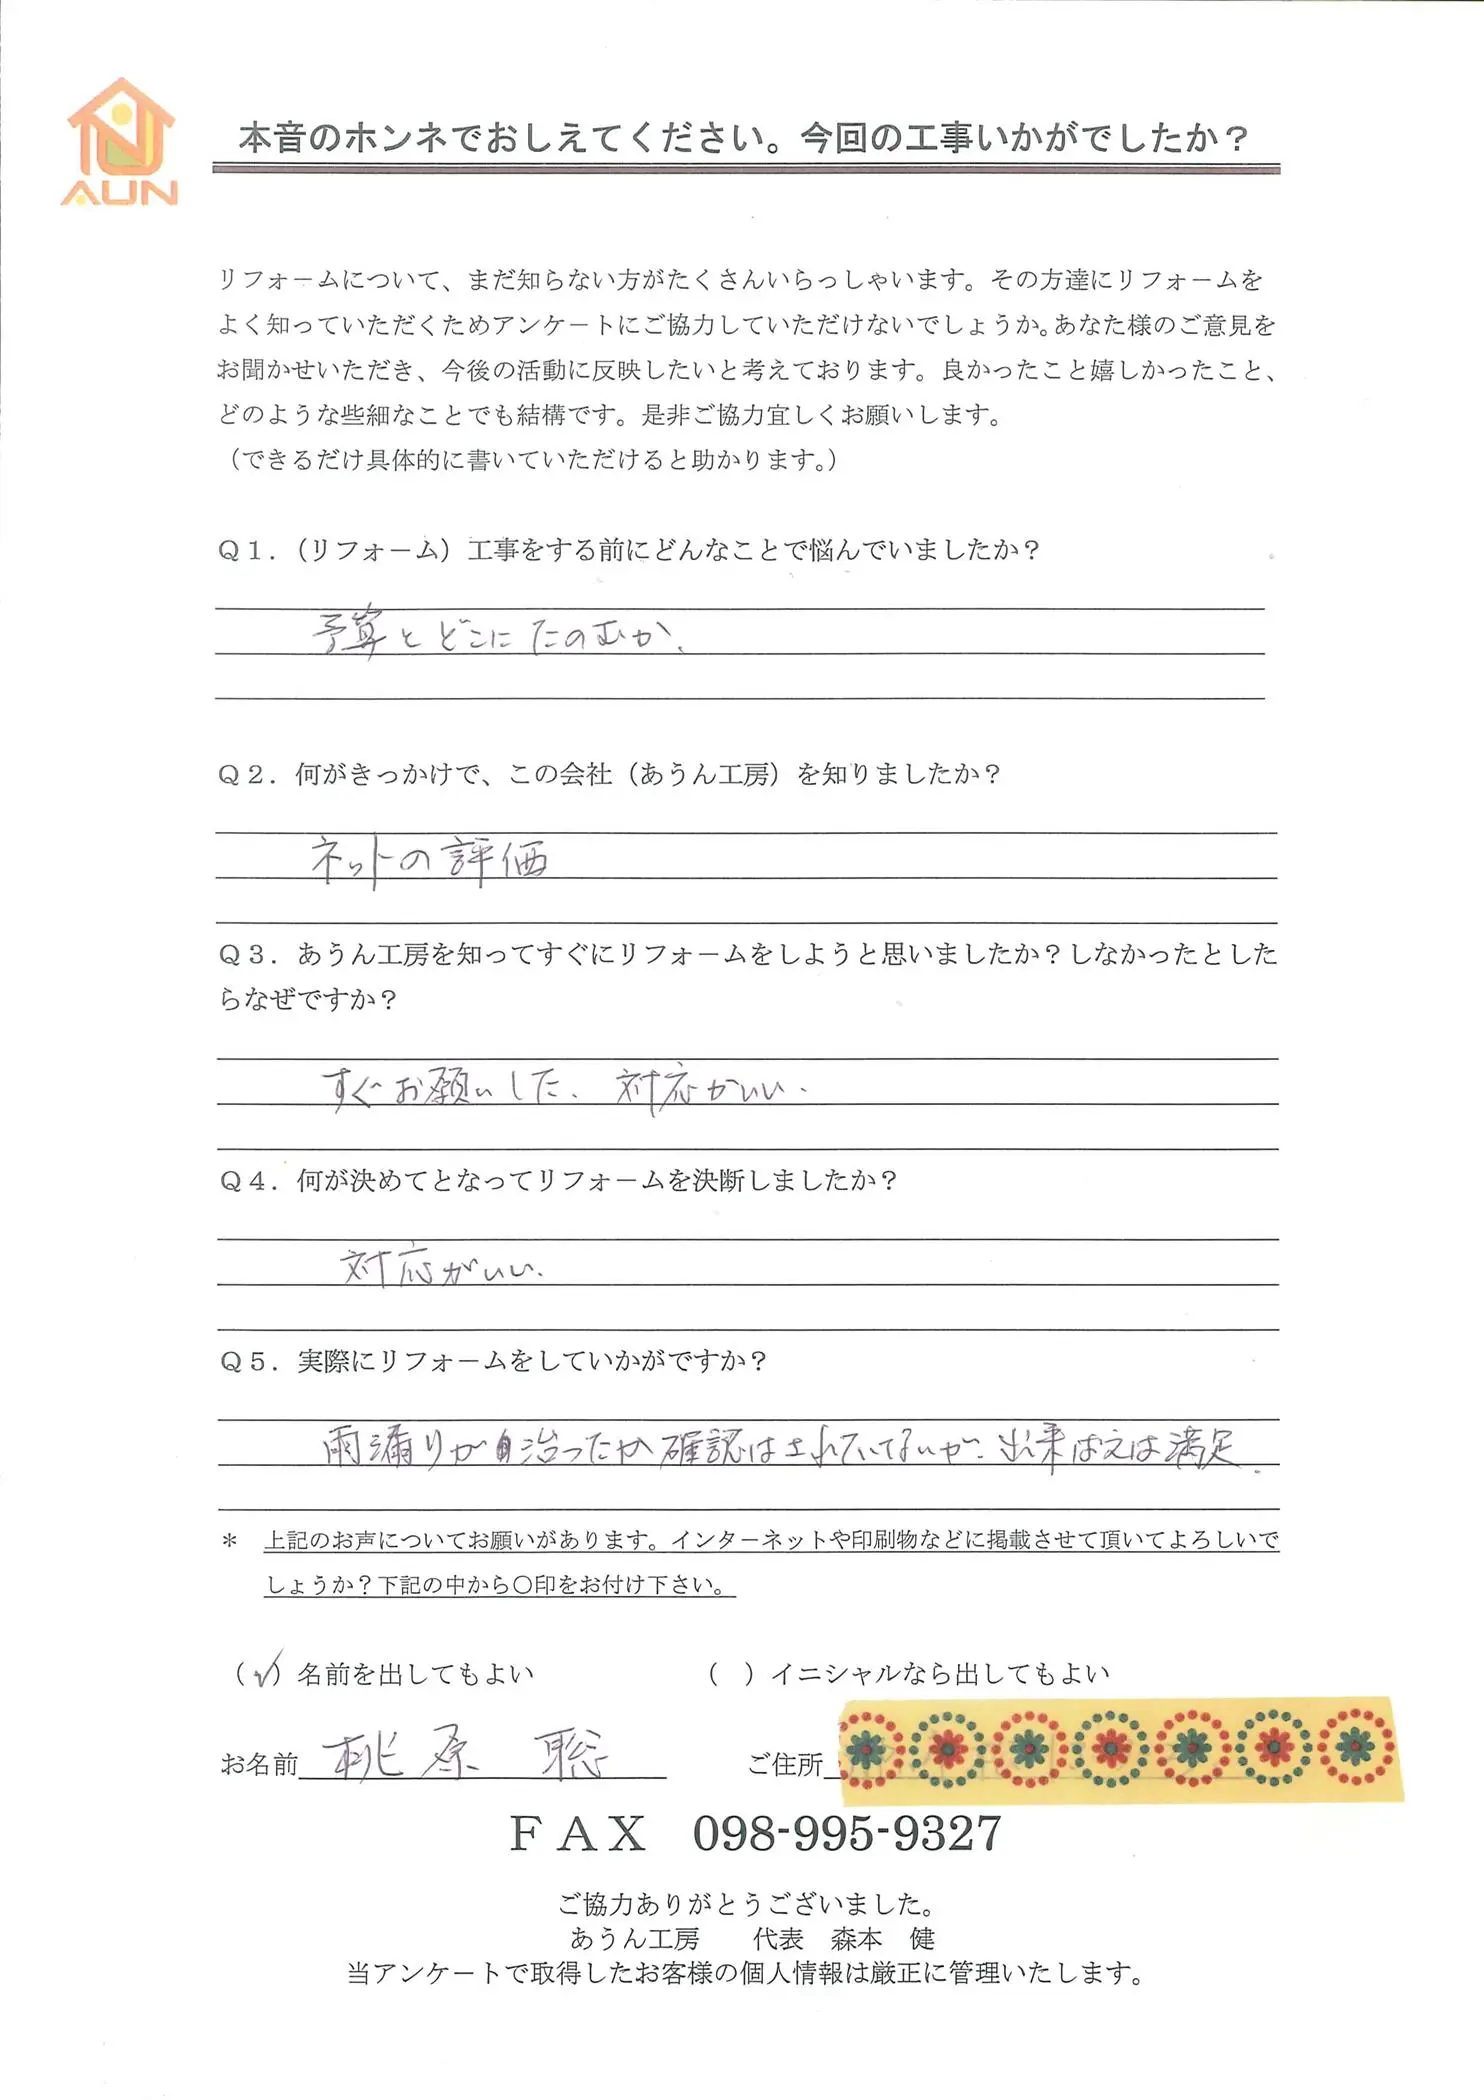 AUN
本音のホンネでおしえてください。今回の工事いかがでしたか？
リフォームについて、まだ知らない方がたくさんいらっしゃいます。その方達にリフォームを
よく知っていただくためアンケートにご協力していただけないでしょうか。あなた様のご意見を
お聞かせいただき、今後の活動に反映したいと考えております。良かったこと嬉しかったこと、
どのような些細なことでも結構です。是非ご協力宜しくお願いします。
（できるだけ具体的に書いていただけると助かります。）
Ｑ１．（リフォーム）工事をする前にどんなことで悩んでいましたか？
予算とどこにたのむか、
Ｑ２．何がきっかけで、この会社（あうん工房）を知りましたか？
ネットの評価
Ｑ３．あうん工房を知ってすぐにリフォームをしようと思いましたか？しなかったとした
らなぜですか？
すぐお願いした、対応がいい、
Ｑ４．何が決めてとなってリフォームを決断しましたか？
対応がいい、
Ｑ５．実際にリフォームをしていかがですか？
雨漏りが治ったか確認はされていないが、出来ばえは満足、
＊　上記のお声についてお願いがあります。インターネットや印刷物などに掲載させて頂いてよろしいで
しょうか？下記の中から〇印をお付け下さい。
（✓）名前を出してもよい　（　）イニシャルなら出してもよい
お名前 桃原 聡　ご住所
ＦＡＸ　098-995-9327
ご協力ありがとうございました。
あうん工房　代表　森本　健
当アンケートで取得したお客様の個人情報は厳正に管理いたします。